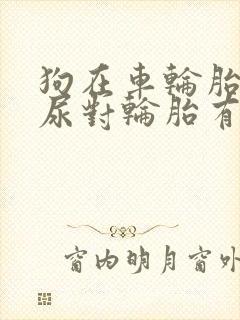 狗在車輪胎
尿對輪胎有
窗内明月窗外